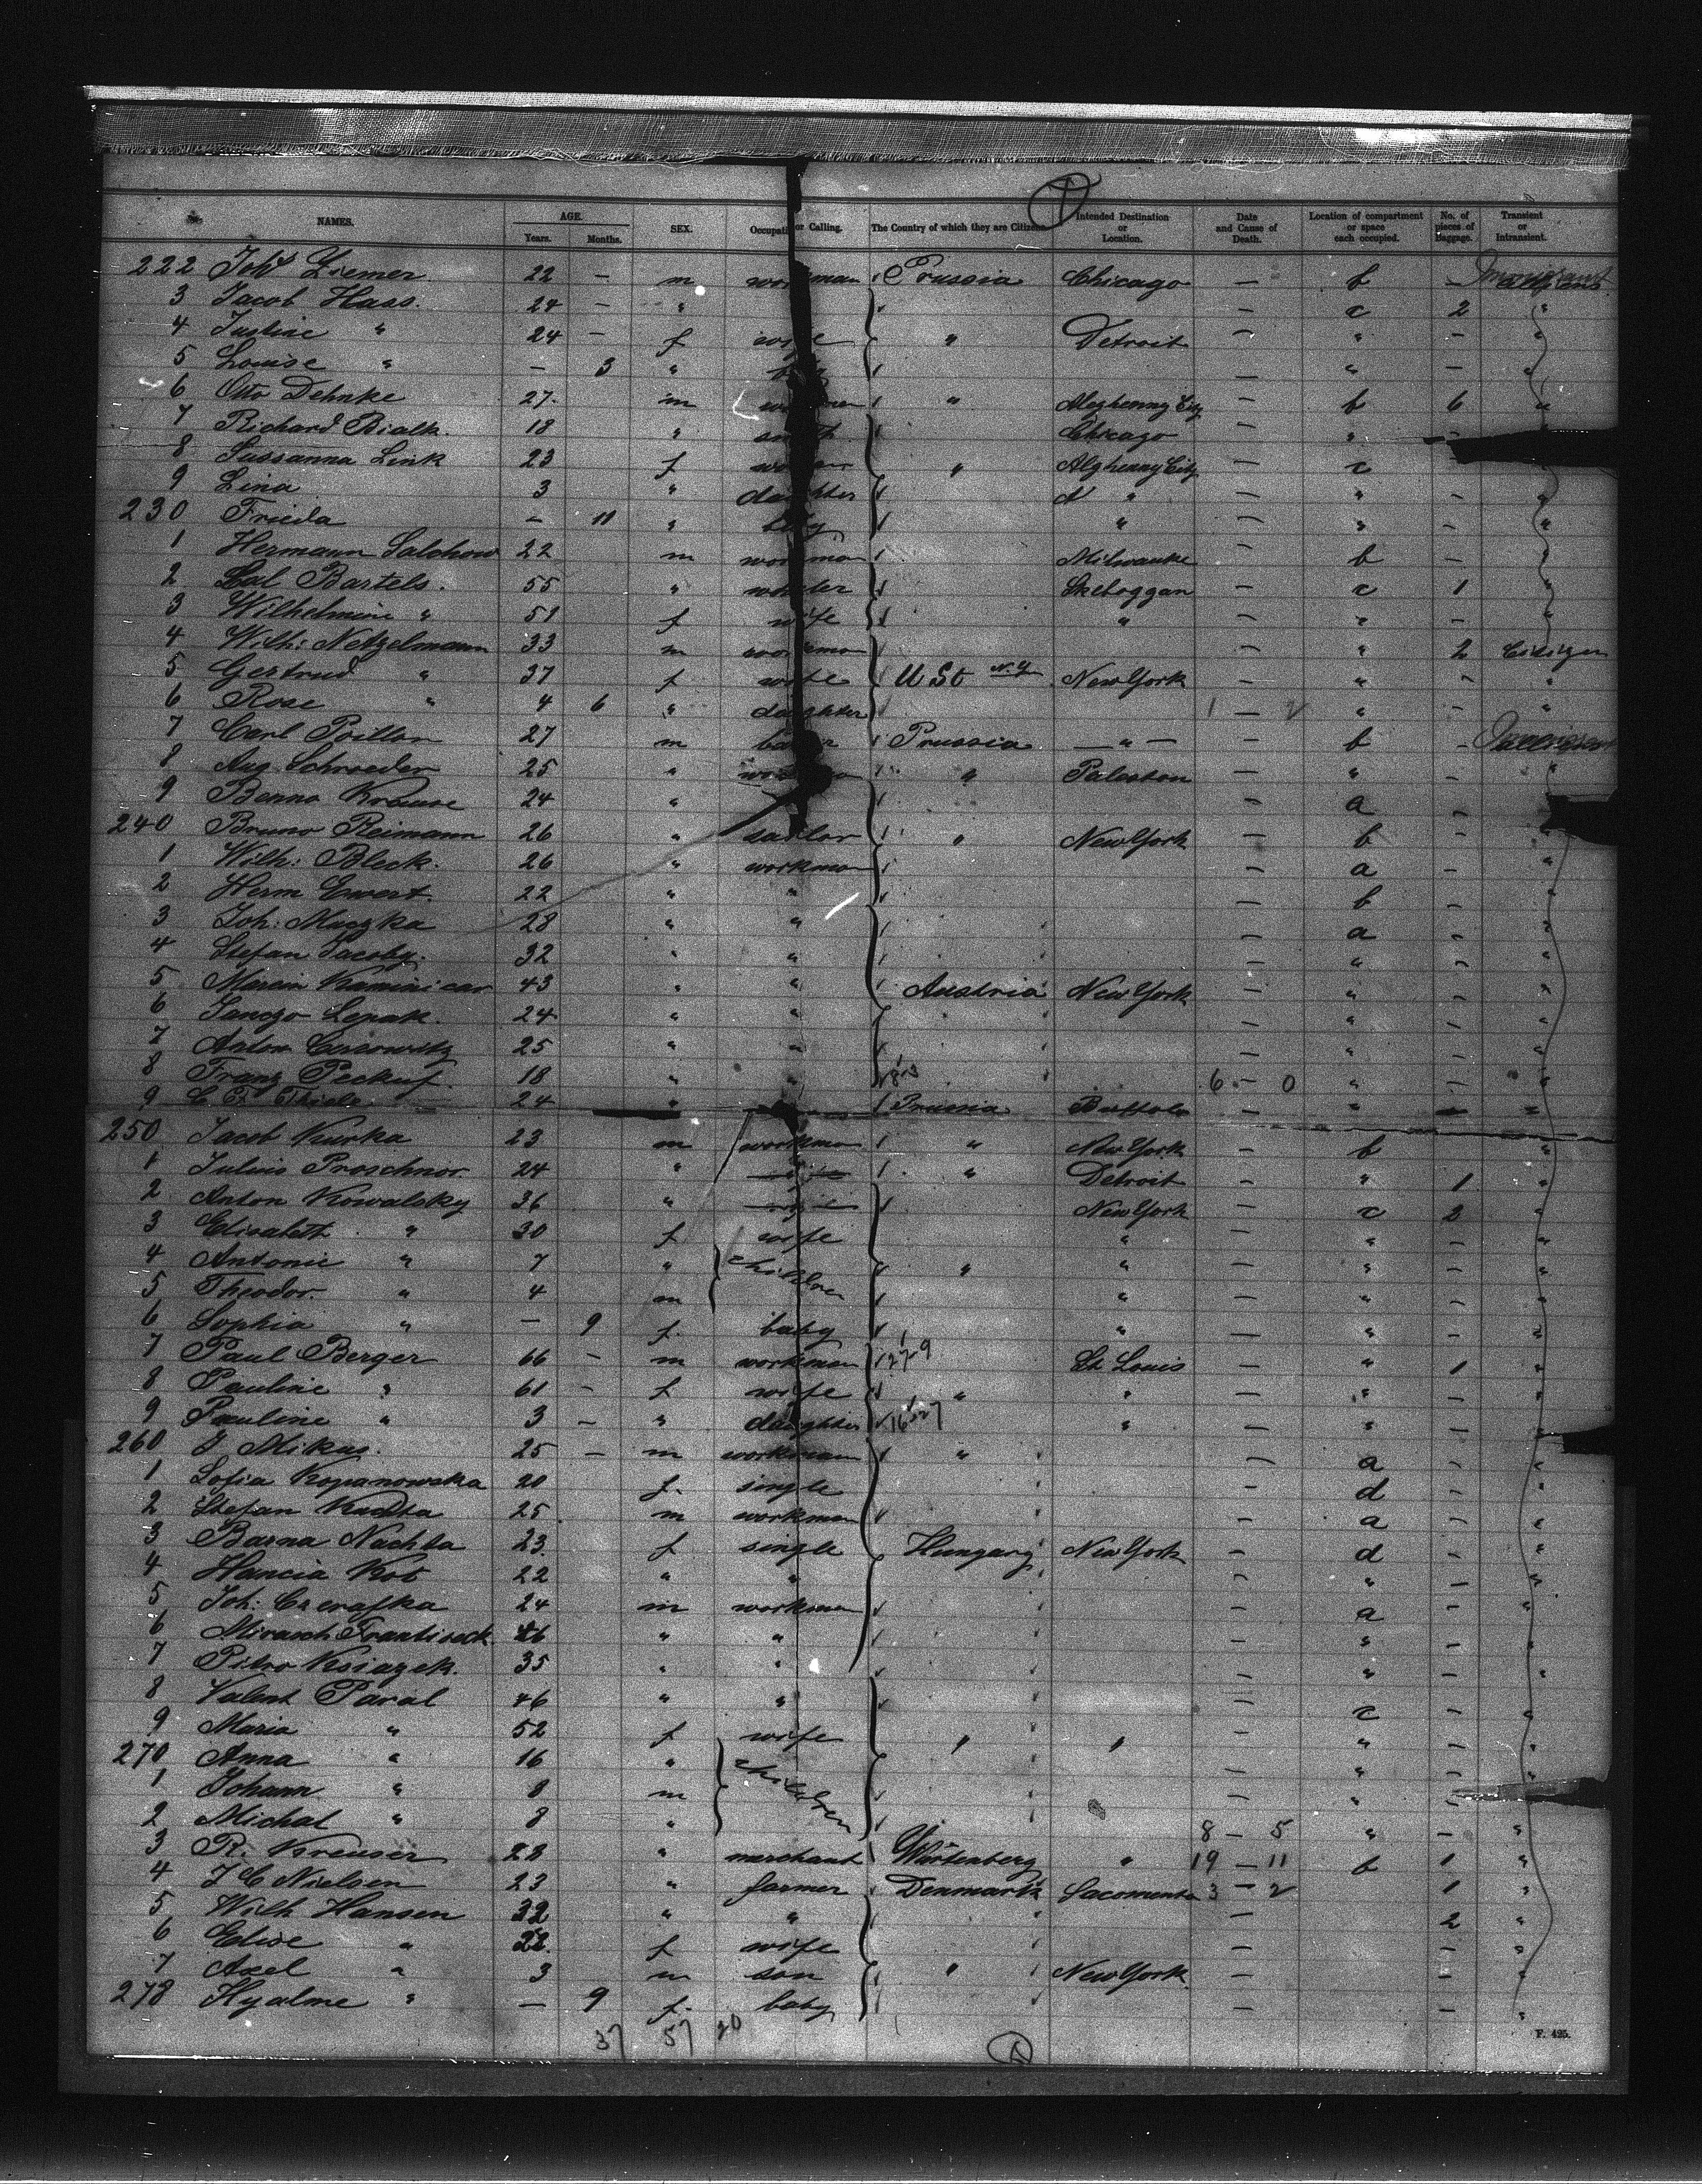 NAMES. AGE. Years. Months. SEX. Occupati or Calling. The Country of which they are Citizens Intended Destination or Location. Date and Cause of Death. Location of compartment or space each occupied. No. of pieces of Baggage. Transient or Intransient.
222 Joh Ziemer 22 — m workman Prussia Chicago — b —
3 Jacob Hass. 24 — " — c 2 "
4 Justine " 24 — f wife " Detroit — " — "
5 Louise " — 3 " — " — "
6 Otto Dehnke 27. m workmen " Aleghenny City — b 6 "
7 Richard Bialk. 18 " smith Chicago — " —
8 Sussanna Link 23 f woman " Alghenny City — c
9 Lina 3 " daughter " — " — "
230 Frieda — 11 " baby " — " — "
1 Hermann Salchow 22 m workman Milwauke — b —
2 Bartels. 55 " Skeboggan — c 1 "
3 Wilhelmine " 51 f wife " — " — "
4 Wilh: Netzelmann 33 m workman " 2 Citizen
5 Gertrud " 37 f wife U St N.Y. New York " — "
6 Rose " 4 6 " daughter 1 — 2 " — "
7 Carl 27 m Prussia — " — — b —
8 Aug. Schroeder 25 " workman " Paleston — " — "
9 Benno Krause 24 " — a —
240 Bruno Reimann 26 " sailor " New York — b — "
1 Wilh: Bleck. 26 " workman — a — "
2 Herm Ewert. 22 " " — b — "
3 Joh: Muczka 28 " " — a — "
4 Stefan Jacoby. 32 " " — " — "
5 43 " " Austria New York — " — "
6 24 " " — " — "
7 Anton 25 " " — " — "
8 Franz 18 " " 6 — 0 " — "
9 C F Thiele 24 " Prussia Buffalo — " — "
250 Jacob Kurka 23 m workman " New York — b "
1 Julius Proschnor. 24 " " Detroit — " 1 "
2 Anton Kowalsky 36 " New York — c 2 "
3 Elisabeth " 30 f wife " — " — "
4 Antonie " 7 " children " " — " — "
5 Theodor. " 4 m " — " — "
6 Sophia " — 9 f. baby " — " — "
7 Paul Berger 66 — m workman 27-9 St Louis — " 1 "
8 Pauline " 61 — f wife " " — " — "
9 Pauline " 3 — " daughter " — " — "
260 J Mikas. 25 — m workman " — a — "
1 Sofia Kopanowska 20 f. single — d — "
2 Stefan 25 m workman — a — "
3 Barna Nachta 23. f single Hungary New York — d — "
4 Hancia Kob 22 " " — " — "
5 Joh: 24 m workman a — "
6 Mirasch Frantiseck. " " — " — "
7 Pitro Ksiazek. 35 " " — " — "
8 Valent Paral 46 " " — c — "
9 Maria " 52 f wife " " — " — "
270 Anna " 16 " children — " — "
1 Johann " 8 m — " —
2 Michal " 8 " 8 — 5 " — "
3 R. Kreuser 28 " merchant Würtenberg " 19 — 11 b 1 "
4 J C Nielsen 23 " farmer Denmark Sacomenta 3 — 2 1 "
5 Wilh Hansen 32 " " — 2 "
6 Elise " 22. f wife — — "
7 Axel " 3 m son " New York. — — "
278 Hyalme " — 9 f. baby — — "
37 57 20
F. 425.